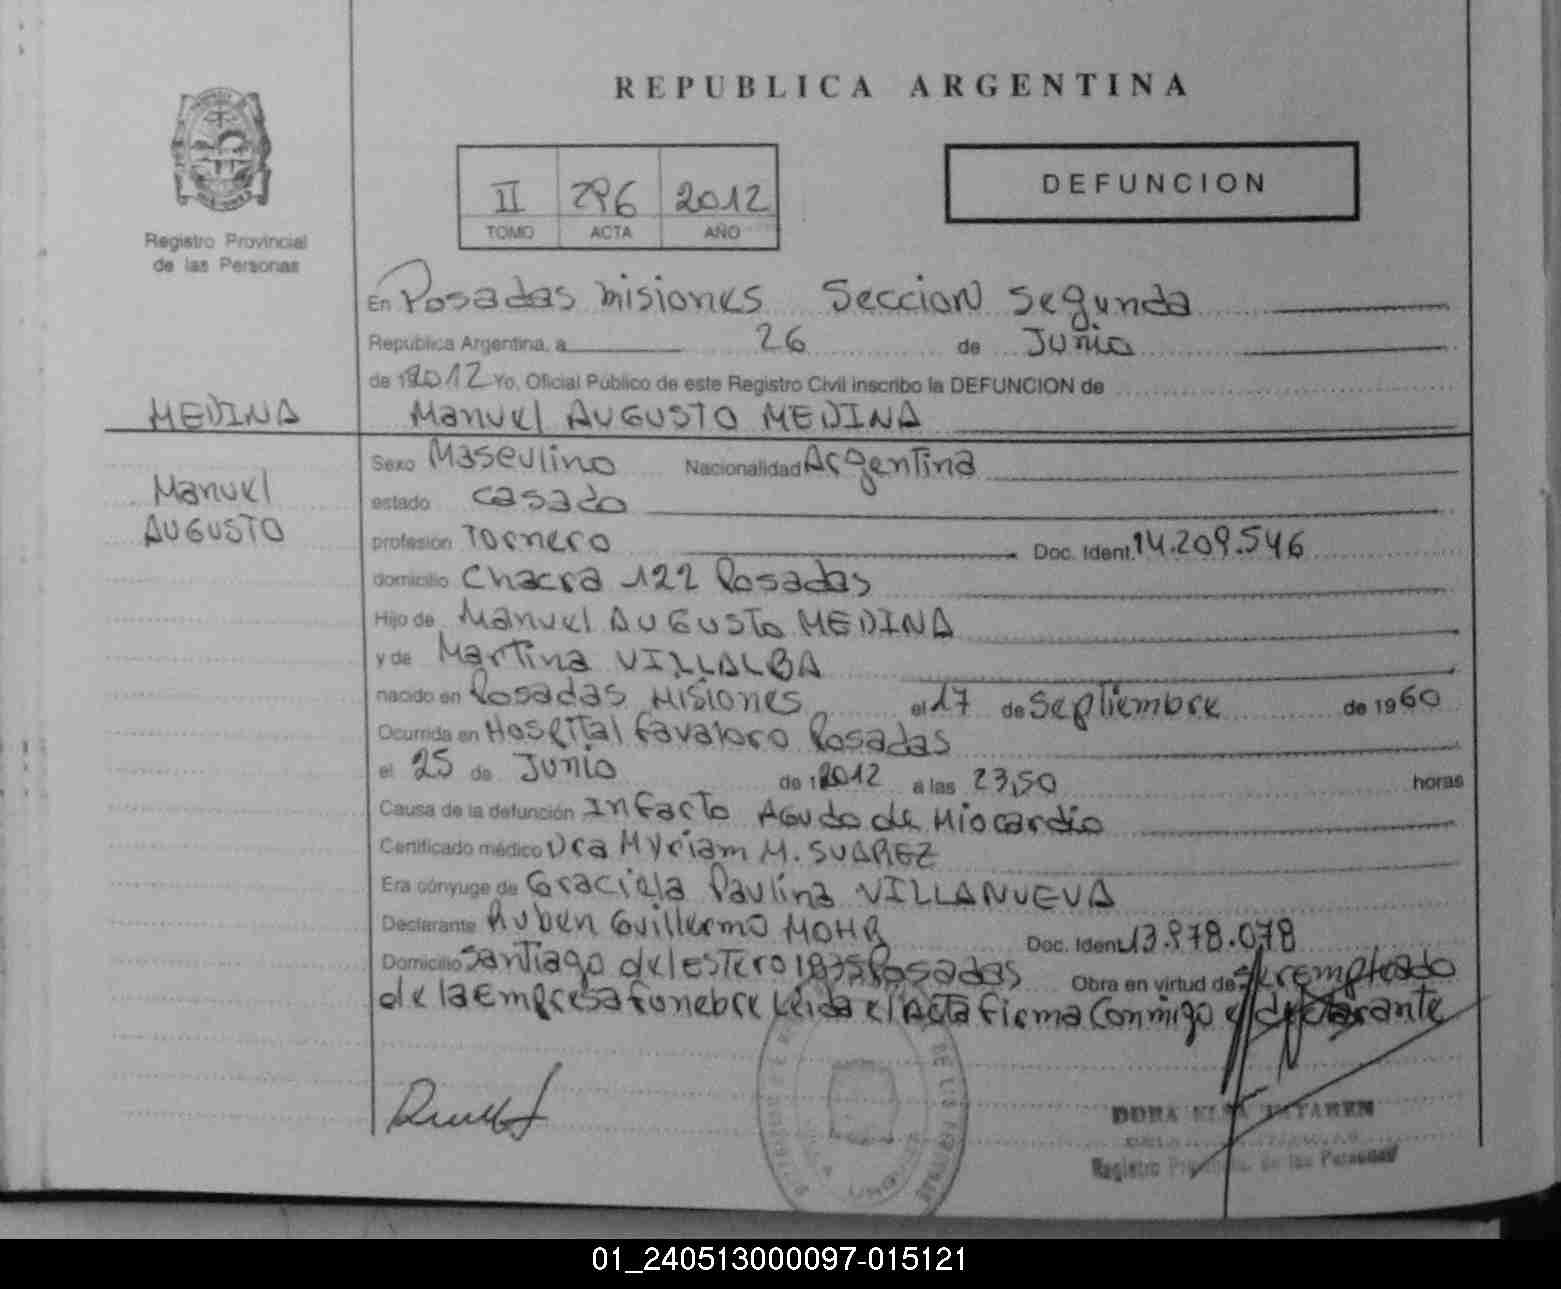 REPUBLICA ARGENTINA
II 796 2012
TOMO ACTA AÑO
DEFUNCION
Registro Provincial
de las Personas
En Posadas misiones Seccion Segunda
Republica Argentina, a 26 de Junio
de 19 2012 Yo, Oficial Público de este Registro Civil inscribo la DEFUNCION de
MEDINA Manuel AUGUSTO MEDINA
Manuel
AUGUSTO
Sexo Masculino Nacionalidad Argentina
estado casado
profesion Tornero Doc. Ident. 14.209.546
domicilio Chacra 122 Posadas
Hijo de Manuel AUGUSTO MEDINA
y de Martina VILLALBA
nacido en Posadas Misiones el 17 de Septiembre de 1960
Ocurrida en Hospital favaloro Posadas
el 25 de Junio de 1 2012 a las 23,50 horas
Causa de la defunción Infarto Agudo de Miocardio
Certificado médico Dra Myriam M. SUAREZ
Era cónyuge de Graciela Paulina VILLANUEVA
Declarante Ruben Guillermo MOHR Doc. Ident. 13.978.078
Domicilio Santiago del estero 1835 Posadas Obra en virtud de ser empleado
de la Empresa funebre Leida el Acta firma Conmigo el declarante
DORA ELSA
Registro Provincial de las Personas
01_240513000097-015121